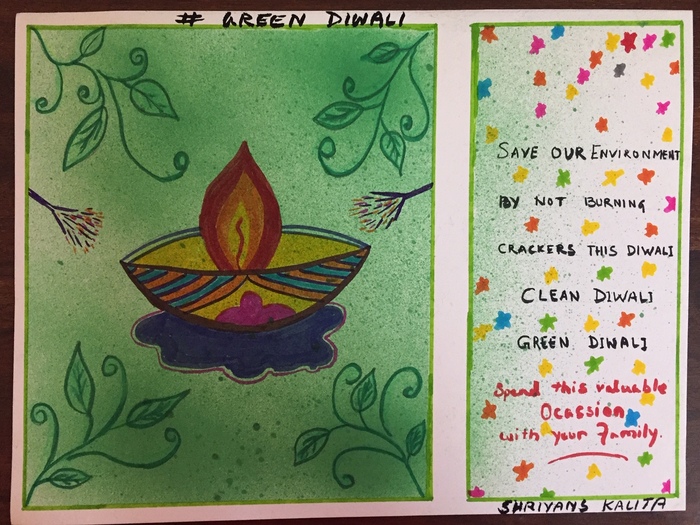 # GREEN DIWALI
SAVE OUR ENVIRONMENT
BY NOT BURNING
CRACKERS THIS DIWALI
CLEAN DIWALI
GREEN DIWALI
Spend this valuable
Ocassion
with your Family.
SHRIYANS KALITA